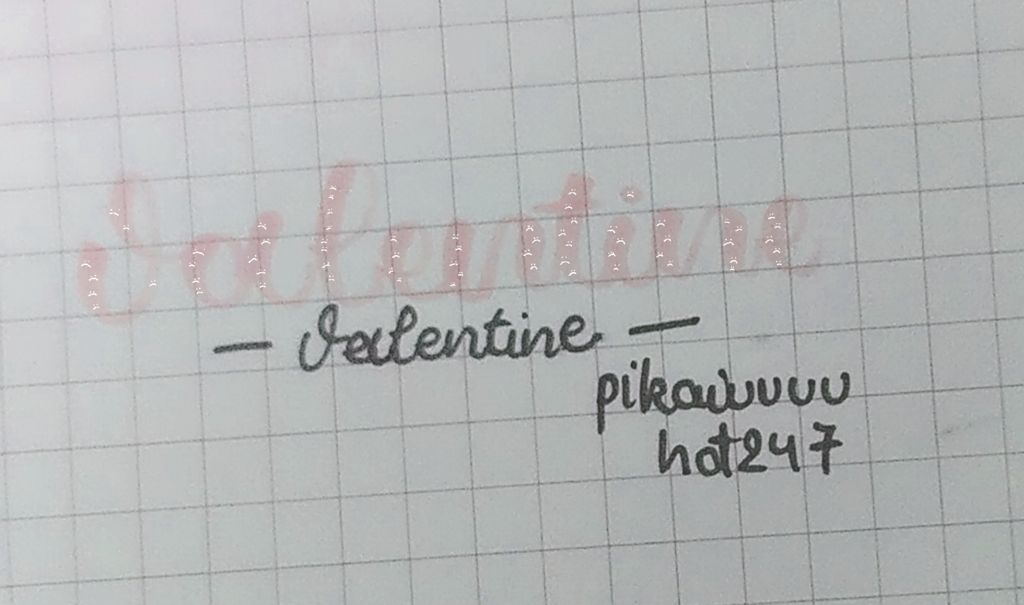 Valentine
— Valentine —
pikawuuuu
hot247